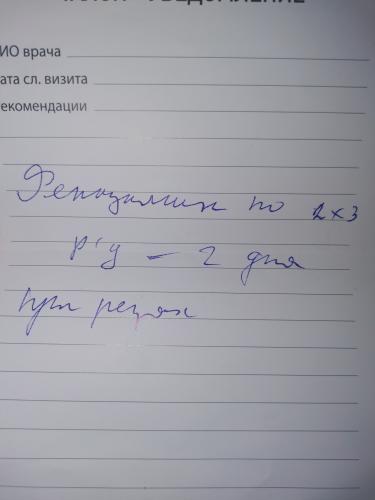 УВЕДОМЛЕНИЕ
ИО врача
ата сл. визита
екомендации
Феназалгин по 2 х 3
р/у – 2 дня
при резях